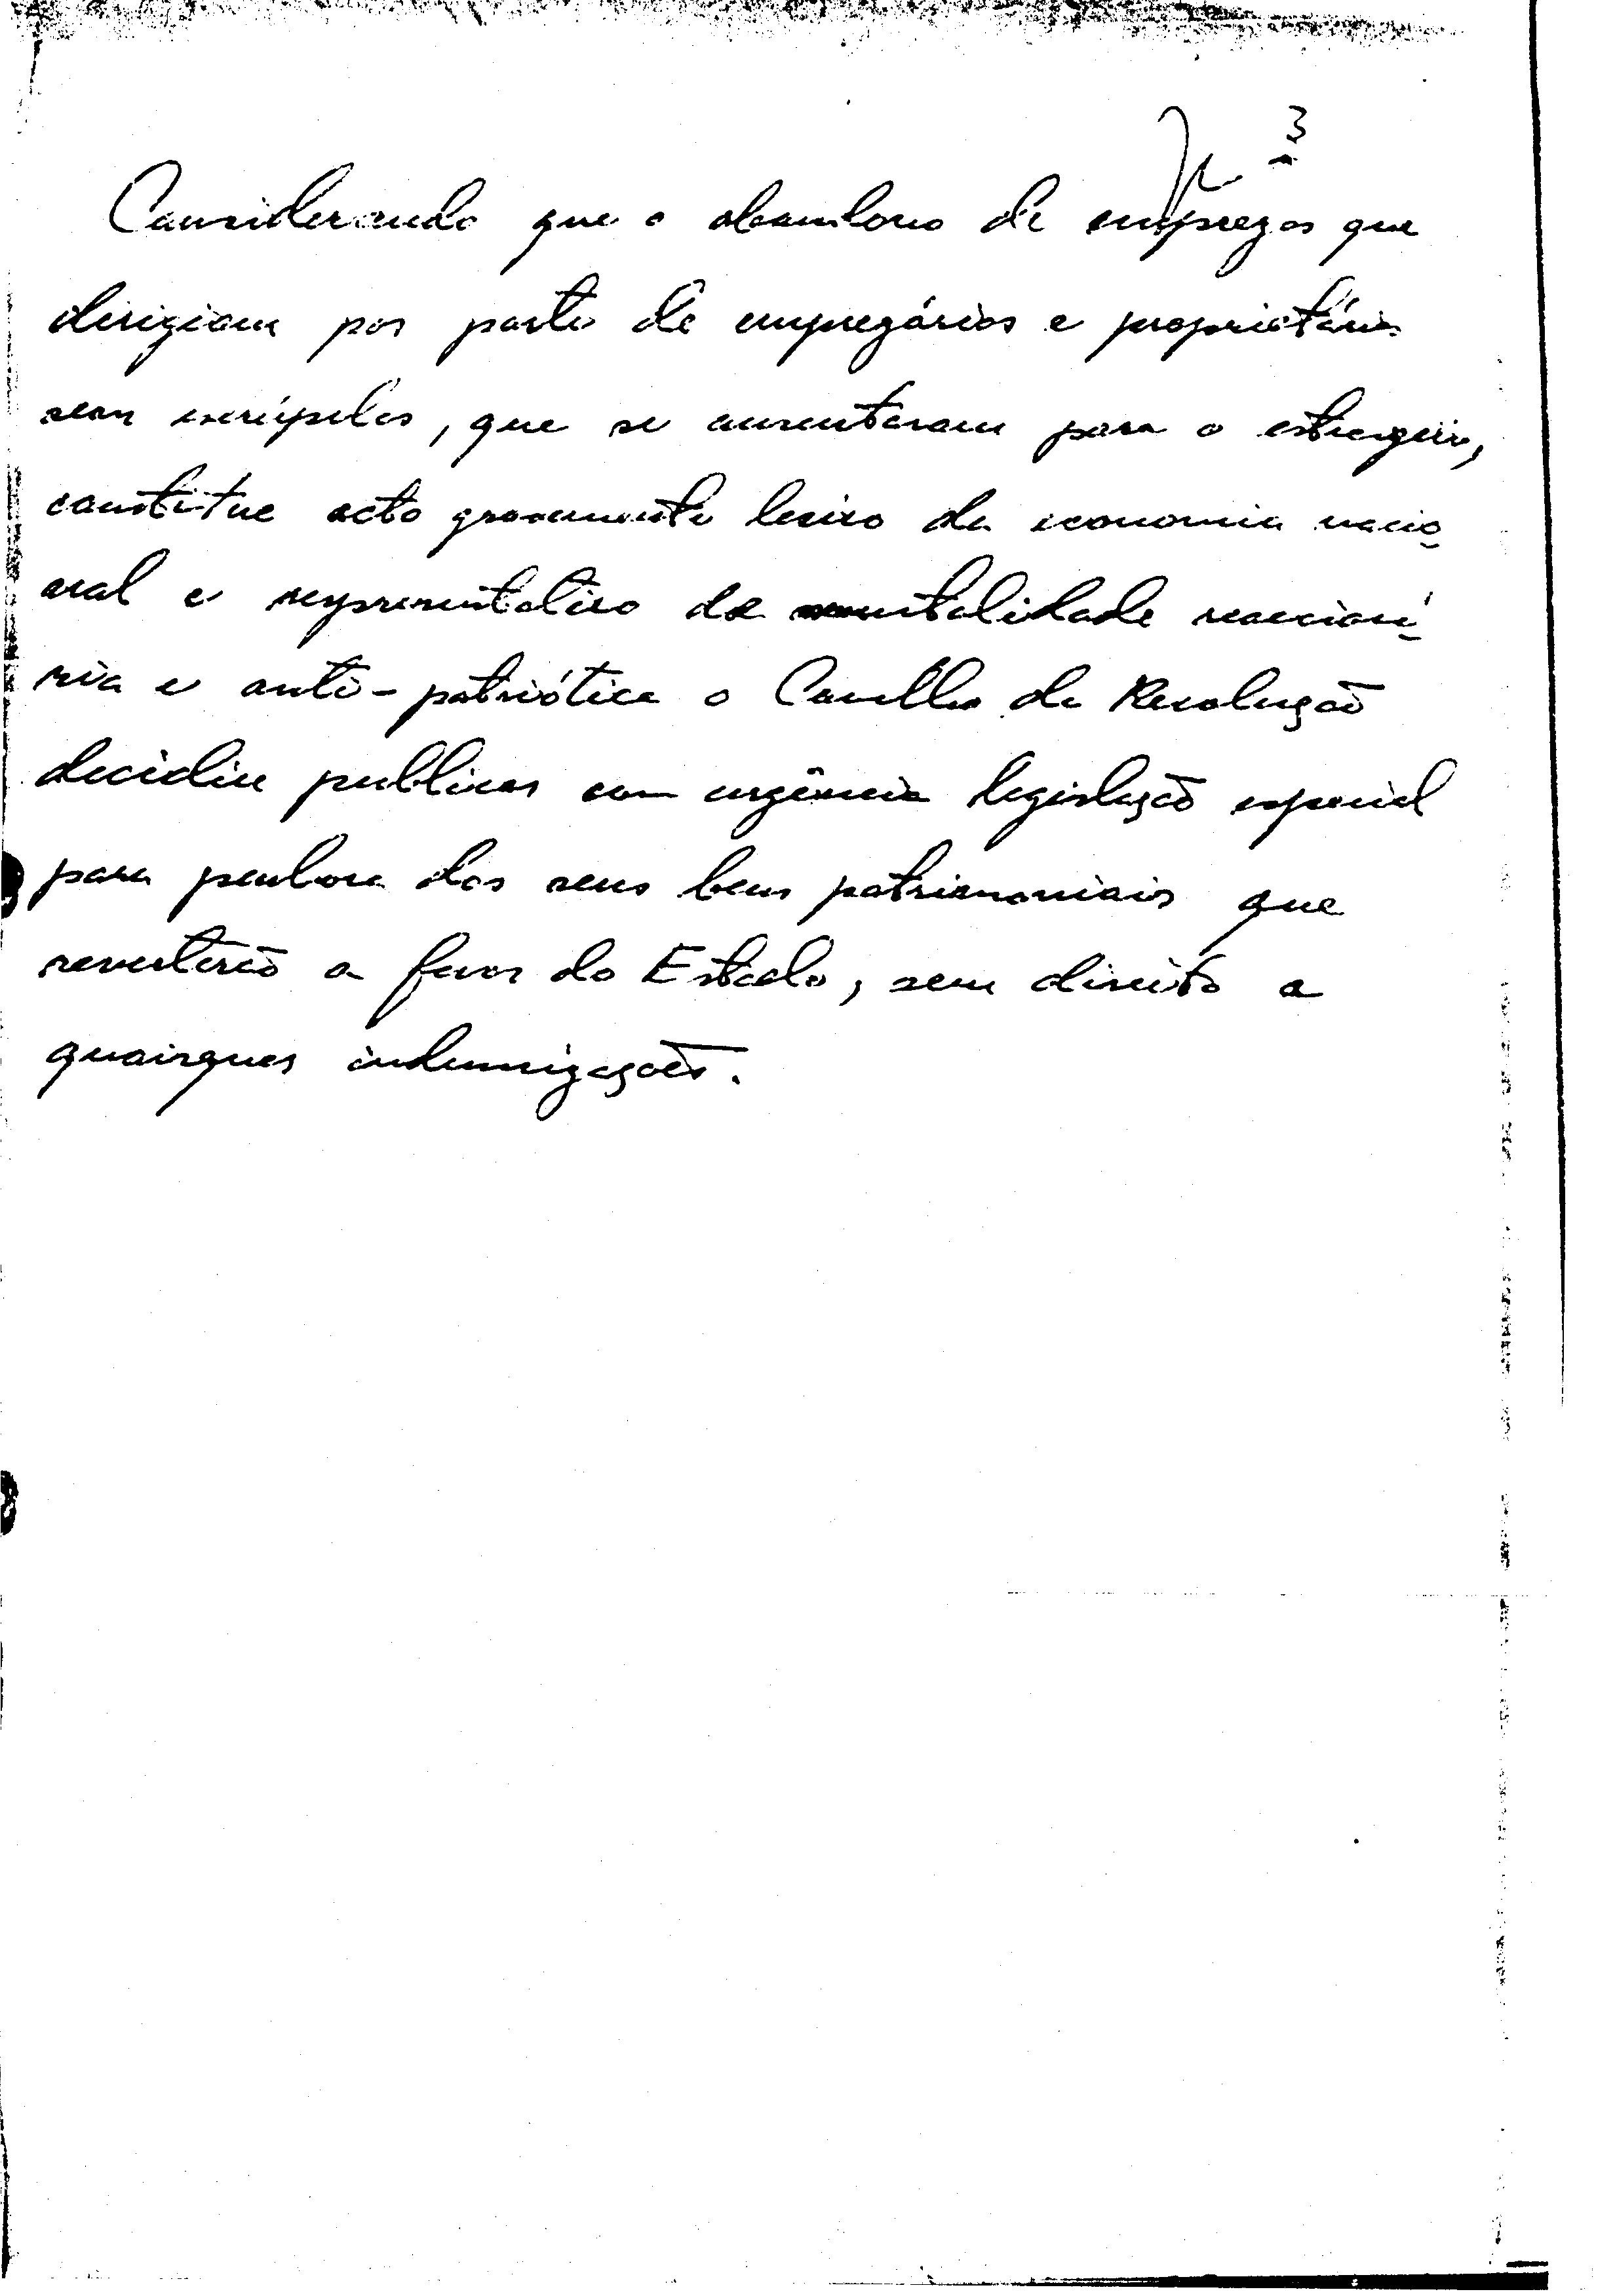 3
Considerando que o abandono de emprezas que
dirigiam por parte de emprezários e proprietários
sem escrúpulos, que se ausentaram para o estrangeiro,
constitue acto gravemente lesivo da economia nacio-
nal e representativo da mentalidade reaccioná-
ria e anti-patriótica o Conselho da Revolução
decidiu publicar com urgência legislação especial
para penhora dos seus bens patrimoniais que
reverterão a favor do Estado, sem direito a
quaisquer indemnizações.